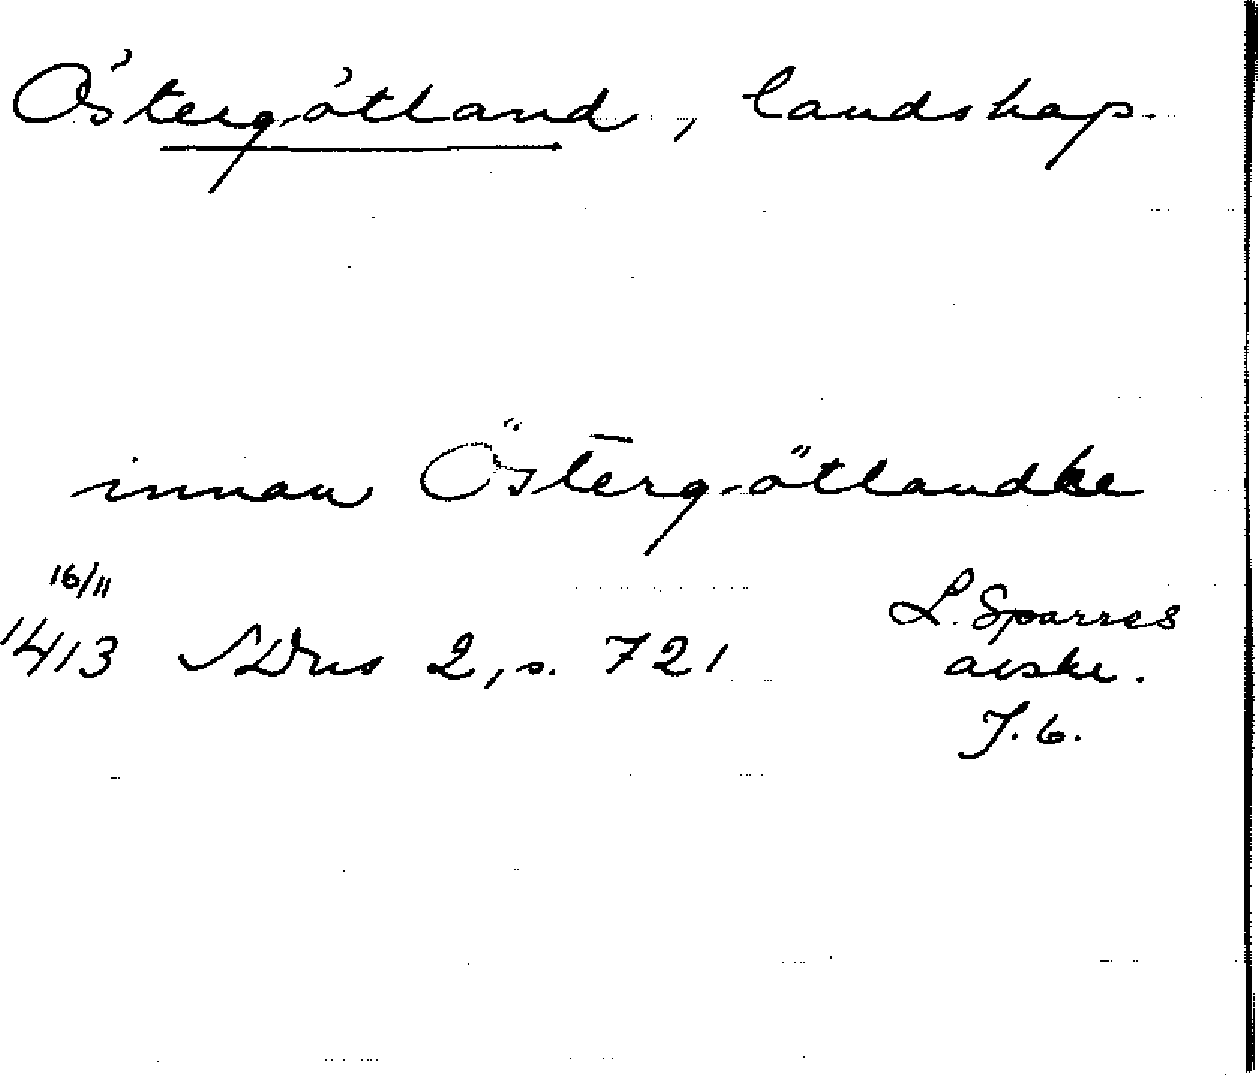 Östergötland, landskap.
innan Östergötlandhe
16/11
1413 SDns 2, s. 721
L. Sparres
avskr.
f. 6.